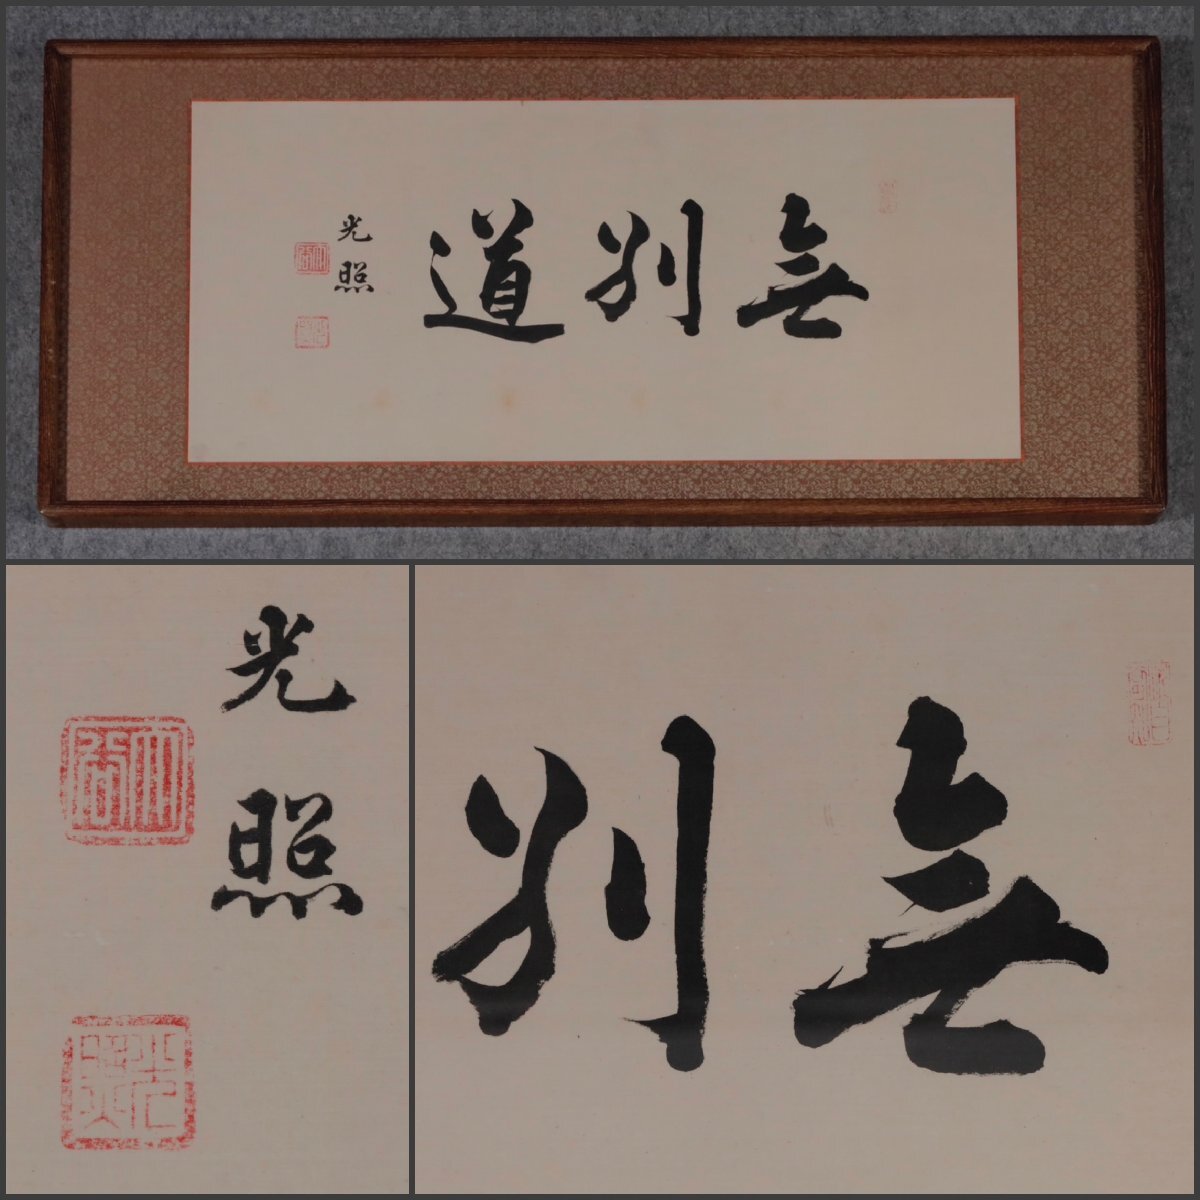 無別道
光照
光照
光照
無別